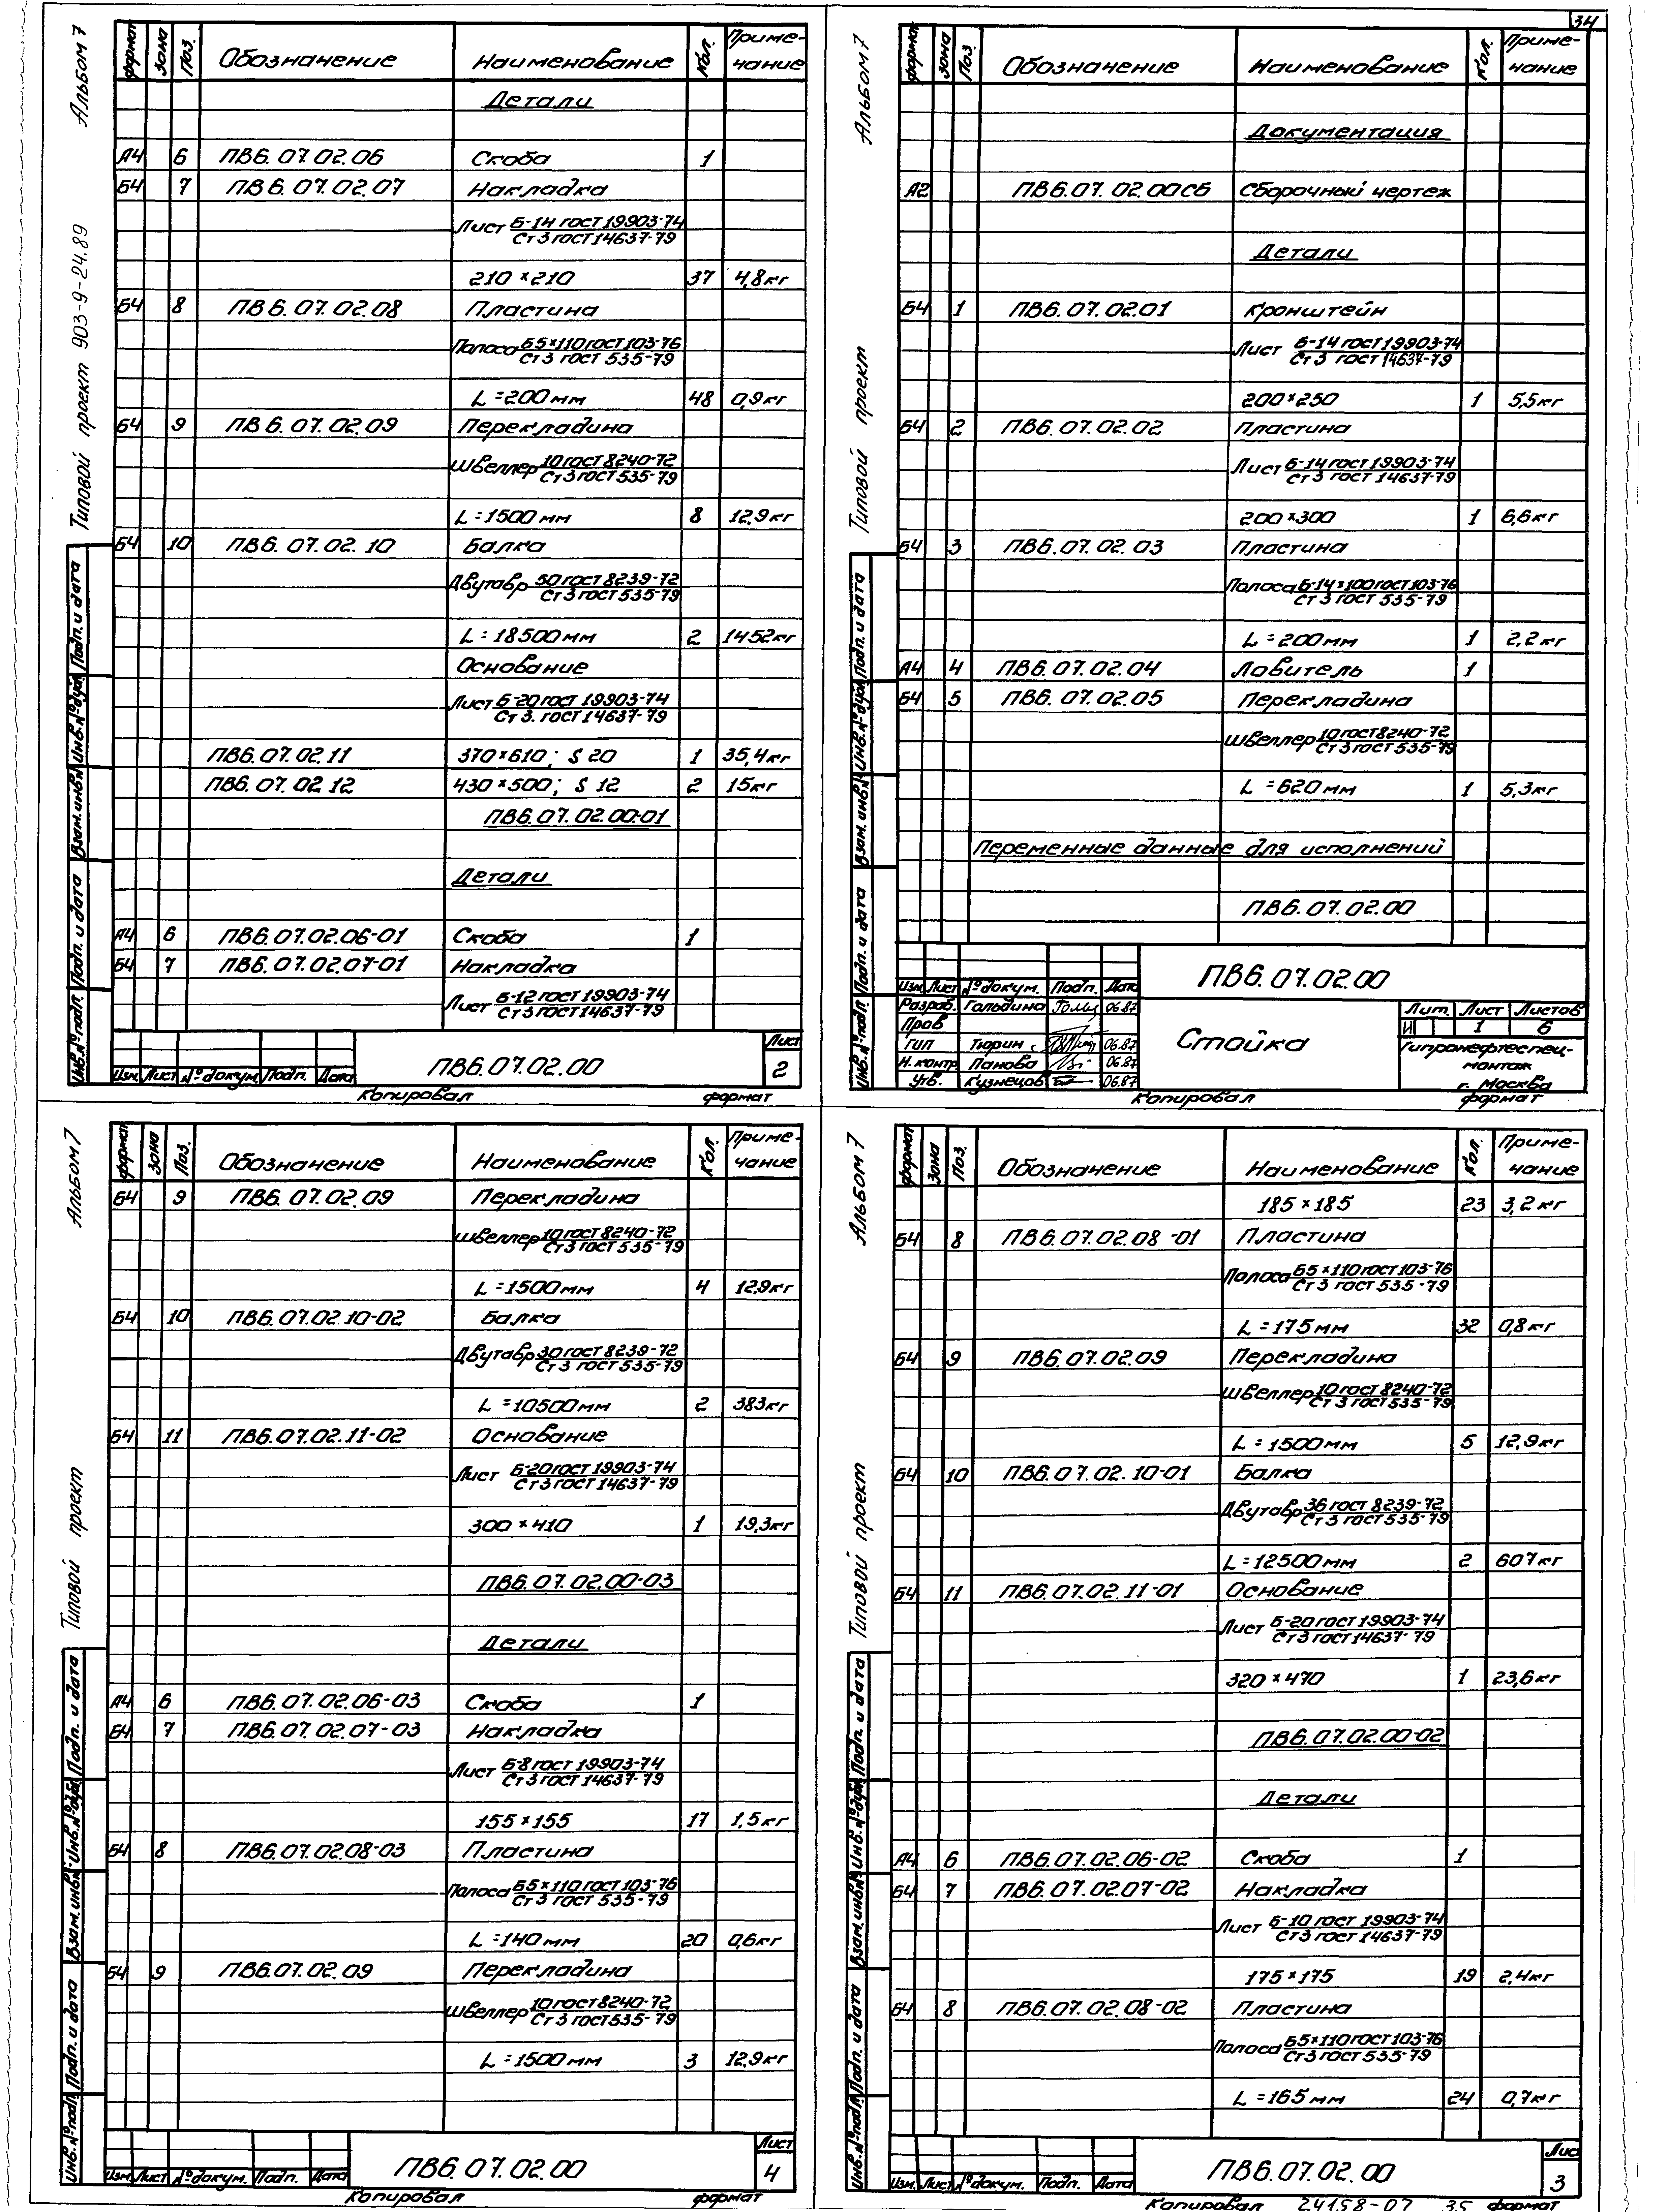 34
Альбом 7
Типовой проект 903-9-24.89
формат Зона Поз. Обозначение Наименование Кол. Приме-чание
Детали
А4 6 ПВ6.07.02.06 Скоба 1
Б4 7 ПВ6.07.02.07 Накладка
Лист Б-14 гост 19903-74
Ст3 гост 14637-79
210×210 37 4,8кг
Б4 8 ПВ6.07.02.08 Пластина
Полоса Б5×110 гост 103-76
Ст3 гост 535-79
L=200мм 48 0,9кг
Б4 9 ПВ6.07.02.09 Перекладина
Швеллер 10 гост 8240-72
Ст3 гост 535-79
L=1500мм 8 12,9кг
Б4 10 ПВ6.07.02.10 Балка
Двутавр 50 гост 8239-72
Ст3 гост 535-79
L=18500мм 2 1452кг
Основание
Лист Б-20 гост 19903-74
Ст3. гост 14637-79
ПВ6.07.02.11 370×610; S 20 1 35,4кг
ПВ6.07.02.12 430×500; S 12 2 15кг
ПВ6.07.02.00-01
Детали
А4 6 ПВ6.07.02.06-01 Скоба 1
Б4 7 ПВ6.07.02.07-01 Накладка
Лист Б-12 гост 19903-74
Ст3 гост 14637-79
Инв.№подл. Подп. и дата Взам.инв.№ Инв.№дубл. Подп. и дата
Изм. Лист №докум. Подп. Дата
ПВ6.07.02.00
Лист
2
Копировал формат
Альбом 7
Типовой проект
формат Зона Поз Обозначение Наименование Кол. Приме-чание
Документация
А2 ПВ6.07.02.00СБ Сборочный чертеж
Детали
Б4 1 ПВ6.07.02.01 Кронштейн
Лист Б-14 гост 19903-74
Ст3 гост 14637-79
200×250 1 5,5кг
Б4 2 ПВ6.07.02.02 Пластина
Лист Б-14 гост 19903-74
Ст3 гост 14637-79
200×300 1 6,6кг
Б4 3 ПВ6.07.02.03 Пластина
Полоса Б-14×100 гост 103-76
Ст3 гост 535-79
L=200мм 1 2,2кг
А4 4 ПВ6.07.02.04 Ловитель 1
Б4 5 ПВ6.07.02.05 Перекладина
Швеллер 10 гост 8240-72
Ст3 гост 535-79
L=620мм 1 5,3кг
Переменные данные для исполнений
ПВ6.07.02.00
Инв.№подл. Подп. и дата Взам.инв.№ Инв.№дубл. Подп. и дата
Изм. Лист №докум. Подп. Дата
Разраб. Гольдина 06.87
Пров
Гип Тюрин 06.87
Н.контр Панова 06.87
Утв. Кузнецов 06.87
ПВ6.07.02.00
Стойка
Лит. Лист Листов
И 1 6
Гипронефтеспец-
монтаж
г. Москва
Копировал формат
Альбом 7
Типовой проект
формат Зона Поз. Обозначение Наименование Кол. Приме-чание
Б4 9 ПВ6.07.02.09 Перекладина
Швеллер 10 гост 8240-72
Ст3 гост 535-79
L=1500мм 4 12,9кг
Б4 10 ПВ6.07.02.10-02 Балка
Двутавр 30 гост 8239-72
Ст3 гост 535-79
L=10500мм 2 383кг
Б4 11 ПВ6.07.02.11-02 Основание
Лист Б-20 гост 19903-74
Ст3 гост 14637-79
300×410 1 19,3кг
ПВ6.07.02.00-03
Детали
А4 6 ПВ6.07.02.06-03 Скоба 1
Б4 7 ПВ6.07.02.07-03 Накладка
Лист Б-8 гост 19903-74
Ст3 гост 14637-79
155×155 17 1,5кг
Б4 8 ПВ6.07.02.08-03 Пластина
Полоса Б5×110 гост 103-76
Ст3 гост 535-79
L=140мм 20 0,6кг
Б4 9 ПВ6.07.02.09 Перекладина
Швеллер 10 гост 8240-72
Ст3 гост 535-79
L=1500мм 3 12,9кг
Инв.№подл. Подп. и дата Взам.инв.№ Инв.№дубл. Подп. и дата
Изм. Лист №докум. Подп. Дата
ПВ6.07.02.00
Лист
4
Копировал формат
Альбом 7
Типовой проект
формат Зона Поз. Обозначение Наименование Кол. Приме-чание
185×185 23 3,2кг
Б4 8 ПВ6.07.02.08-01 Пластина
Полоса Б5×110 гост 103-76
Ст3 гост 535-79
L=175мм 32 0,8кг
Б4 9 ПВ6.07.02.09 Перекладина
Швеллер 10 гост 8240-72
Ст3 гост 535-79
L=1500мм 5 12,9кг
Б4 10 ПВ6.07.02.10-01 Балка
Двутавр 36 гост 8239-72
Ст3 гост 535-79
L=12500мм 2 607кг
Б4 11 ПВ6.07.02.11-01 Основание
Лист Б-20 гост 19903-74
Ст3 гост 14637-79
320×470 1 23,6кг
ПВ6.07.02.00-02
Детали
А4 6 ПВ6.07.02.06-02 Скоба 1
Б4 7 ПВ6.07.02.07-02 Накладка
Лист Б-10 гост 19903-74
Ст3 гост 14637-79
175×175 19 2,4кг
Б4 8 ПВ6.07.02.08-02 Пластина
Полоса Б5×110 гост 103-76
Ст3 гост 535-79
L=165мм 24 0,7кг
Инв.№подл. Подп. и дата Взам.инв.№ Инв.№дубл. Подп. и дата
Изм. Лист №докум. Подп. Дата
ПВ6.07.02.00
Лист
3
Копировал 24158-07 35 формат